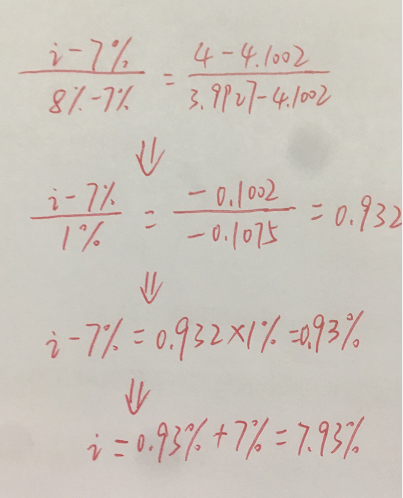 (i-7%)/(8%-7%) = (4-4.1002)/(3.9927-4.1002)
⇓
(i-7%)/(1%) = (-0.1002)/(-0.1075) = 0.932
⇓
i-7% = 0.932×1% = 0.93%
⇓
i = 0.93% + 7% = 7.93%